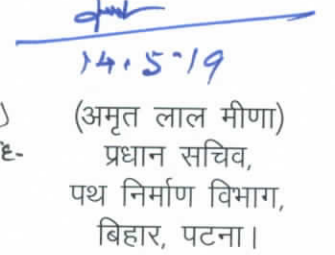 14.5-19
(अमृत लाल मीणा)
प्रधान सचिव,
पथ निर्माण विभाग,
बिहार, पटना।